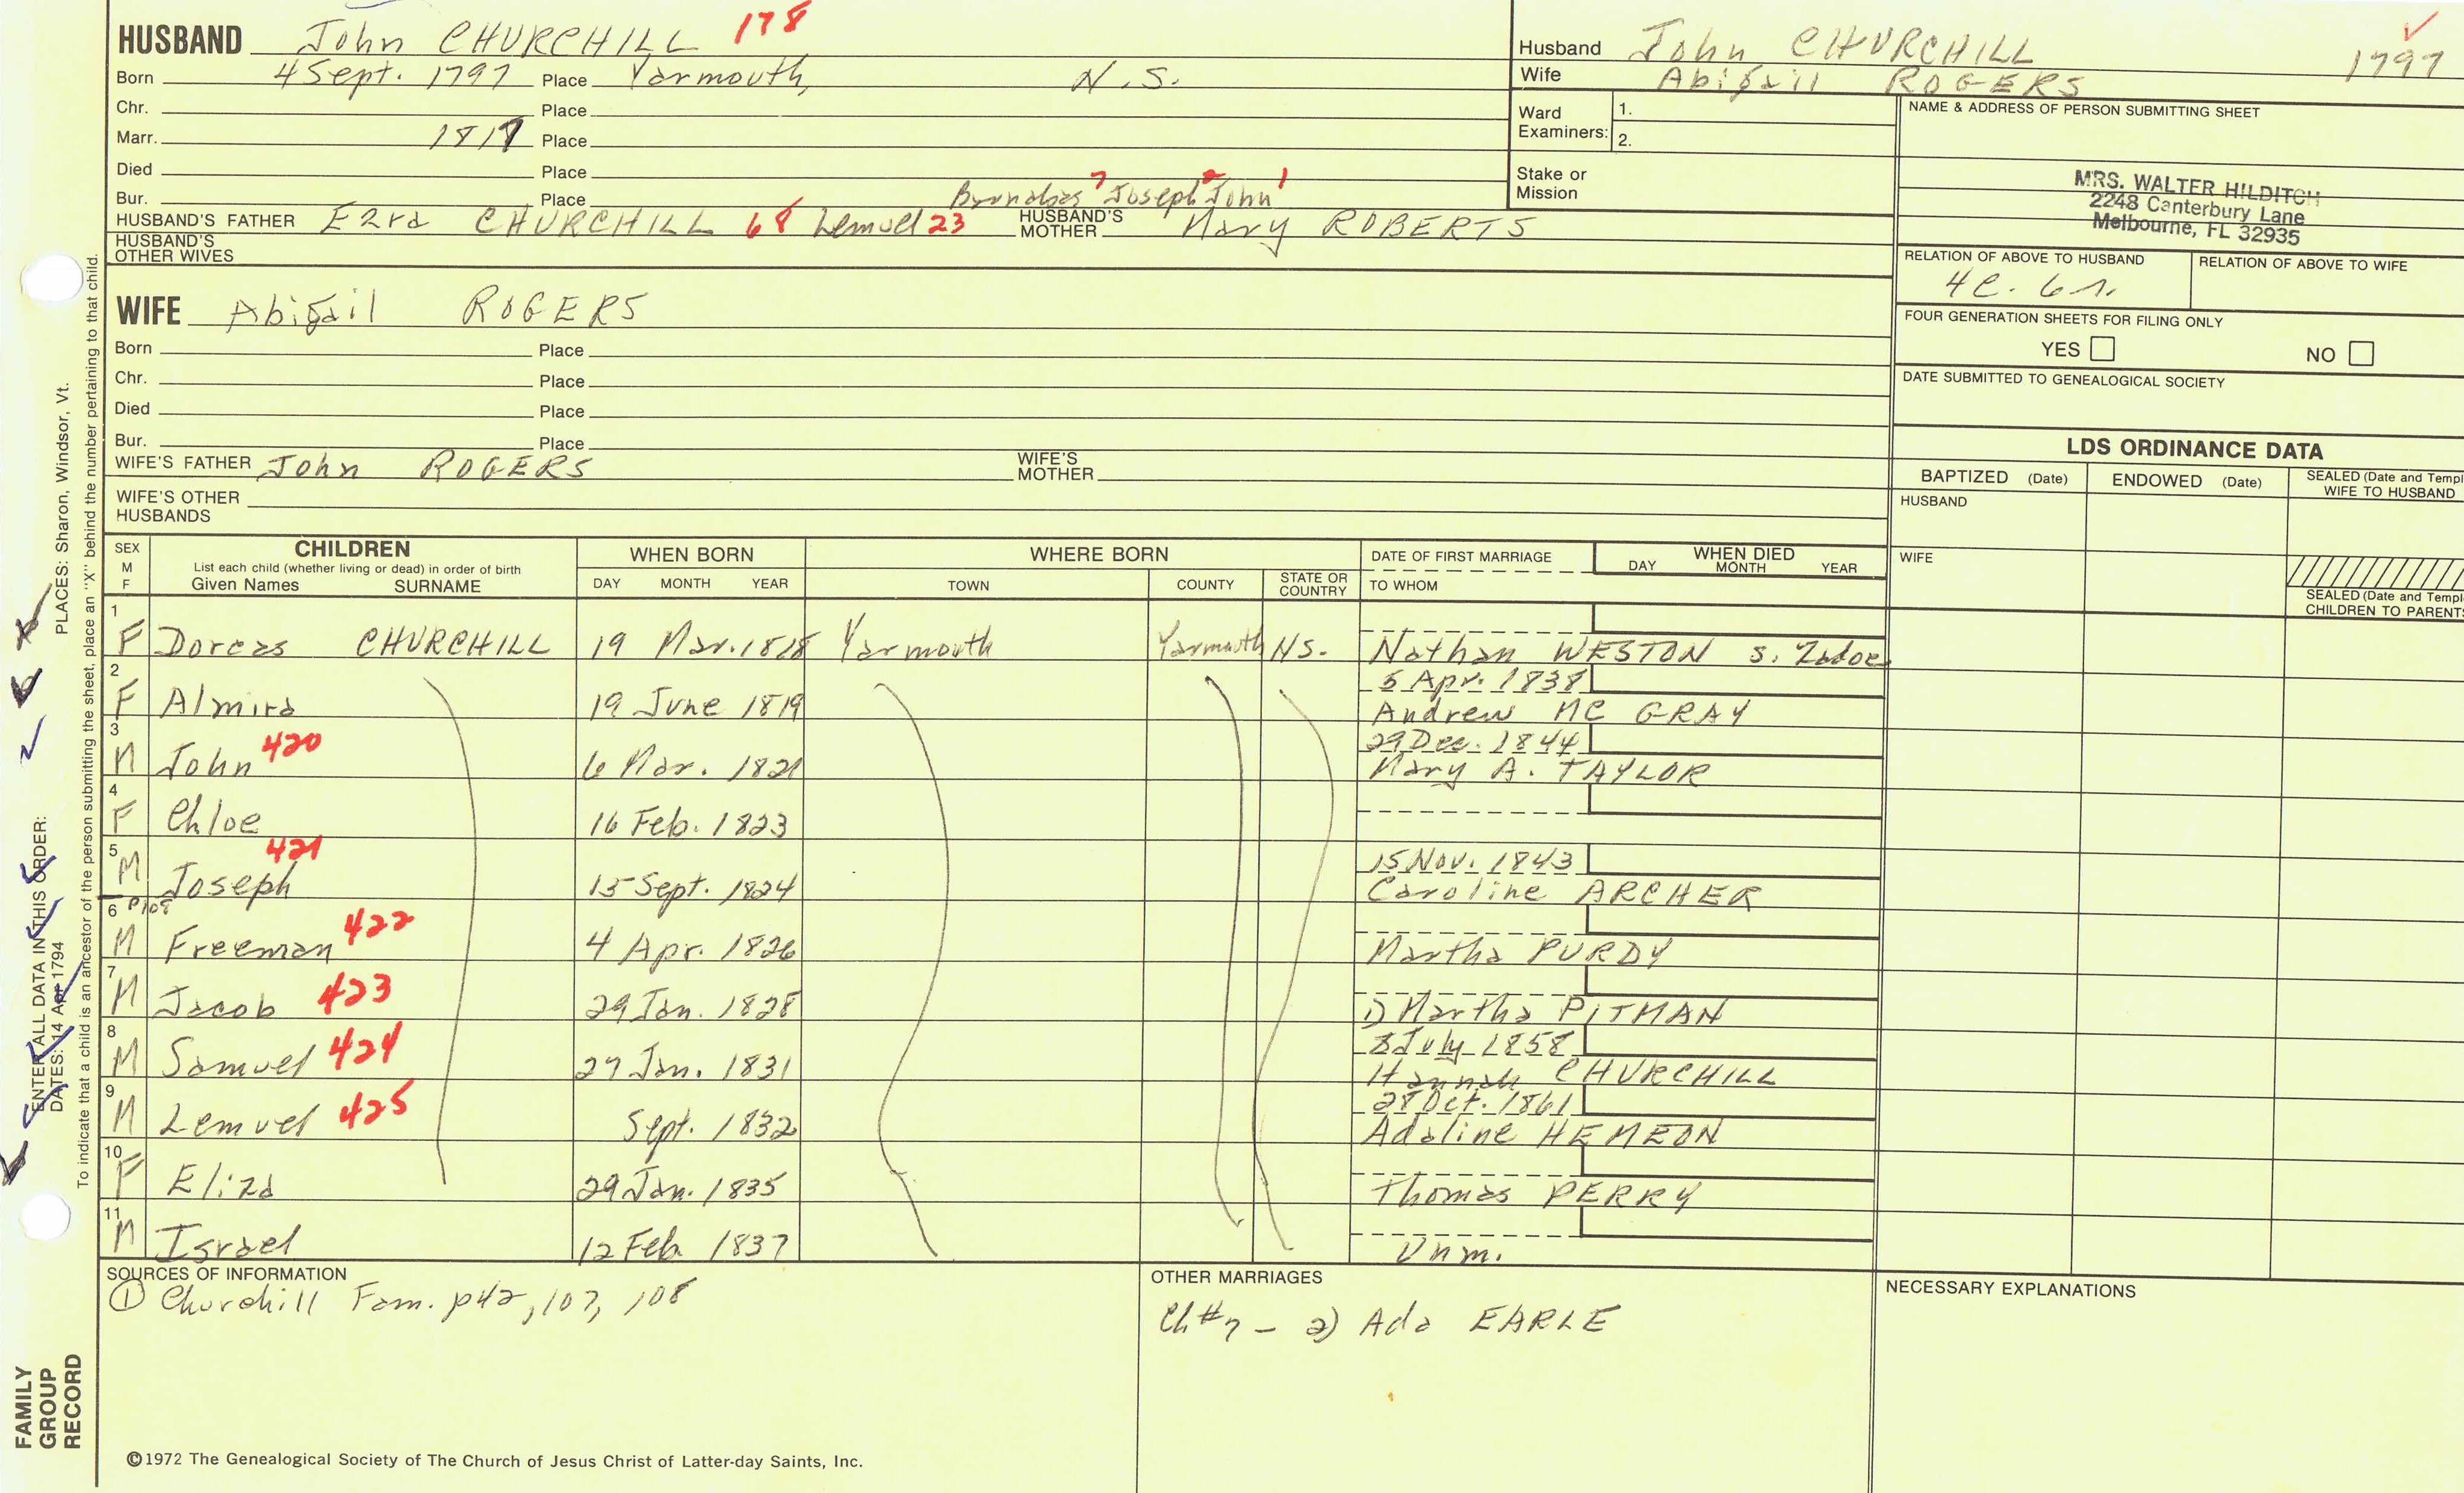 HUSBAND John CHURCHILL 178
Born 4 Sept. 1797 Place Yarmouth, N.S.
Chr. Place
Marr. 1817 Place
Died Place
Bur. Place
Barnabas 7 Joseph 2 John 1
HUSBAND'S FATHER Ezra CHURCHILL 68 Lemuel 23 HUSBAND'S MOTHER Mary ROBERTS
HUSBAND'S OTHER WIVES
WIFE Abigail ROGERS
Born Place
Chr. Place
Died Place
Bur. Place
WIFE'S FATHER John ROGERS WIFE'S MOTHER
WIFE'S OTHER HUSBANDS
Husband John CHURCHILL 1797
Wife Abigail ROGERS
Ward Examiners: 1.
2.
Stake or Mission
NAME & ADDRESS OF PERSON SUBMITTING SHEET
MRS. WALTER HILDITCH
2248 Canterbury Lane
Melbourne, FL 32935
RELATION OF ABOVE TO HUSBAND RELATION OF ABOVE TO WIFE
4c. 6r.
FOUR GENERATION SHEETS FOR FILING ONLY
YES NO
DATE SUBMITTED TO GENEALOGICAL SOCIETY
LDS ORDINANCE DATA
BAPTIZED (Date) ENDOWED (Date) SEALED (Date and Templ
WIFE TO HUSBAND
HUSBAND
WIFE
SEALED (Date and Templ
CHILDREN TO PARENTS
SEX M F CHILDREN WHEN BORN WHERE BORN DATE OF FIRST MARRIAGE WHEN DIED
List each child (whether living or dead) in order of birth
Given Names SURNAME DAY MONTH YEAR TOWN COUNTY STATE OR COUNTRY TO WHOM DAY MONTH YEAR
1 F Dorcas CHURCHILL 19 Mar. 1818 Yarmouth Yarmouth N.S. Nathan WESTON s. Zadoc
2 5 Apr. 1838
F Almira 19 June 1819 Andrew MC GRAY
3 29 Dec. 1844
M John 420 6 Mar. 1821 Mary A. TAYLOR
4 F Chloe 16 Feb. 1823
5 421 15 Nov. 1843
M Joseph 15 Sept. 1824 Caroline ARCHER
6 p108
M Freeman 422 4 Apr. 1826 Martha PURDY
7 M Jacob 423 29 Jan. 1828 1) Martha PITMAN
8 8 July 1858
M Samuel 424 27 Jan. 1831 Hannah CHURCHILL
9 28 Oct. 1861
M Lemuel 425 Sept. 1832 Adaline HEMEON
10 F Eliza 29 Jan. 1835 Thomas PERRY
11 M Israel 12 Feb. 1837 Unm.
SOURCES OF INFORMATION
① Churchill Fam. p42, 107, 108
OTHER MARRIAGES
Ch#7 - 2) Ada EARLE
NECESSARY EXPLANATIONS
©1972 The Genealogical Society of The Church of Jesus Christ of Latter-day Saints, Inc.
FAMILY
GROUP
RECORD
ENTER ALL DATA IN THIS ORDER:
DATES: 14 Apr 1794
PLACES: Sharon, Windsor, Vt.
To indicate that a child is an ancestor of the person submitting the sheet, place an "X" behind the number pertaining to that child.